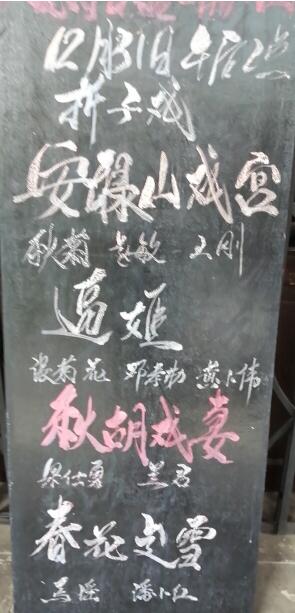 12月31日午后2点
折子戏
安禄山戏宫
秋菊 敏 王刚
逼姬
菊花 黄小伟
秋胡戏妻
梁仕勇 兰君
春花走雪
兰瑶 潘小红